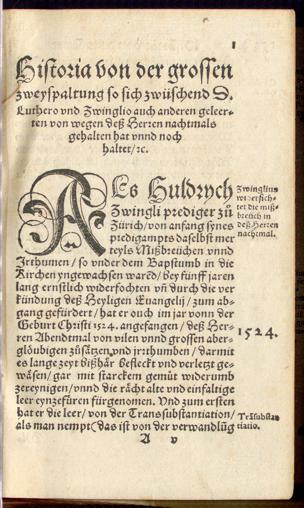 1
Historia von der grossen
zweyspaltung so sich zwüschend D.
Luthero vnd Zwinglio auch anderen geleer-
ten von wegen deß Herren nachtmals
gehalten hat vnnd noch
haltet/ꝛc.
ALs Huldrych
Zwingli prediger zů
Zürich/von anfang synes
predigampts daselbst mer
teyls Mißbreüchen vnnd
Irthumen/ so vnder dem Bapstumb in die
Kirchen yngewachsen warēd/bey fünff jaren
lang ernstlich widerfochten vn̄ durch die ver
kündung deß Heyligen Euangelj/zum ab-
gang gefürdert/hat er ouch im jar vonn der
Geburt Christi 1524. angefangen/deß Her-
ren Abendtmal von vilen vnnd grossen aber-
glöubigen zůsätzen vnd jrthumben/darmit
es lange zeyt bißhär befleckt vnd verletzt ge-
wäsen/gar mit starckem gemüt widerumb
zereynigen/vnnd die rächt alte vnd einfaltige
leer eynzefüren fürgenomen. Vnd zum ersten
hat er die leer/von der Transsubstantiation/
als man nempt (das ist von der verwandlūg
A v
Zwinglius
widerfich-
tet die miß-
breüch in
deß Herren
nachtmal.
1524.
Trāsubstan
tiatio.